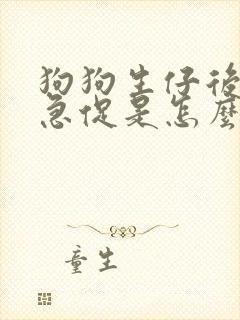 狗狗生仔後
急促是怎麼
童生